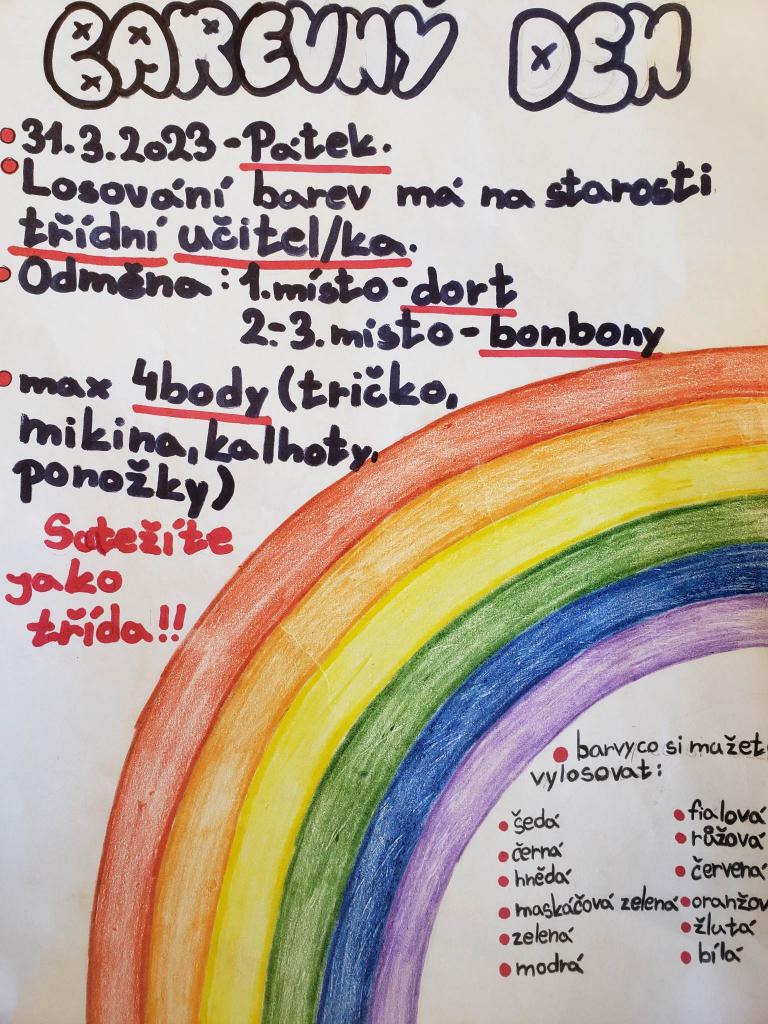 BAREVNÝ DEN
31.3.2023 - Pátek.
Losování barev má na starosti
třídní učitel/ka.
Odměna: 1. místo - dort
2.-3. místo - bonbony
max 4body (tričko,
mikina, kalhoty,
ponožky)
Soutežíte
jako
třída!!
barvy co si mužet
vylosovat:
šedá
černá
hnědá
maskáčová zelená
zelená
modrá
fialová
růžová
červená
oranžov
žlutá
bílá